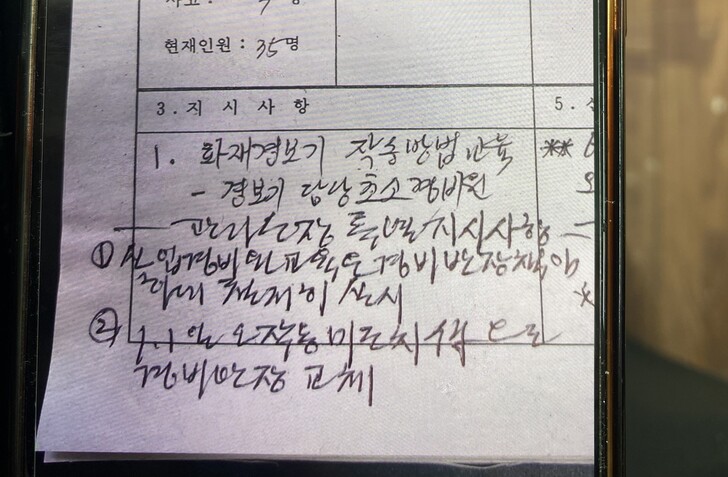 현재인원 : 35명
3. 지 시 사 항
5.
1. 화재경보기 작동방법교육 ※※
- 경보기 담당초소경비원
- 관리소장 특별지시사항 -
① 신입경비원교육은 경비반장책임
하에 철저히 실시
② 1.1일 오작동 미조치 으로
경비반장 교체